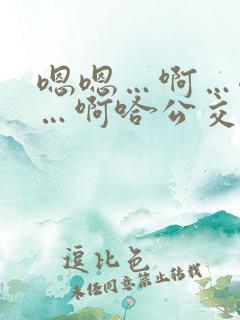 嗯嗯…啊…
…啊嗒公交
逗比色
未经同意禁止转载